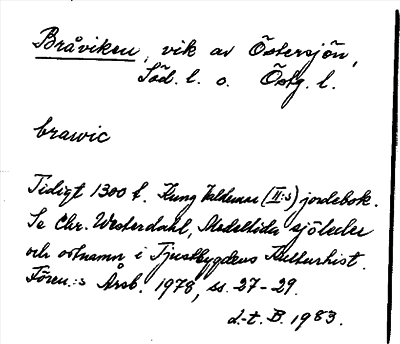 Bråviken, vik av Östersjön,
Söd. l. o. Östg. l.
brawic
Tidigt 1300 t. Kung Valdemar (II:s) jordebok.
Se Chr. Westerdahl, Medeltida sjöleder
och ortnamn i Tjustbygdens Kulturhist.
Fören.:s Årsb. 1978, ss. 27-29.
d.t. B. 1983.